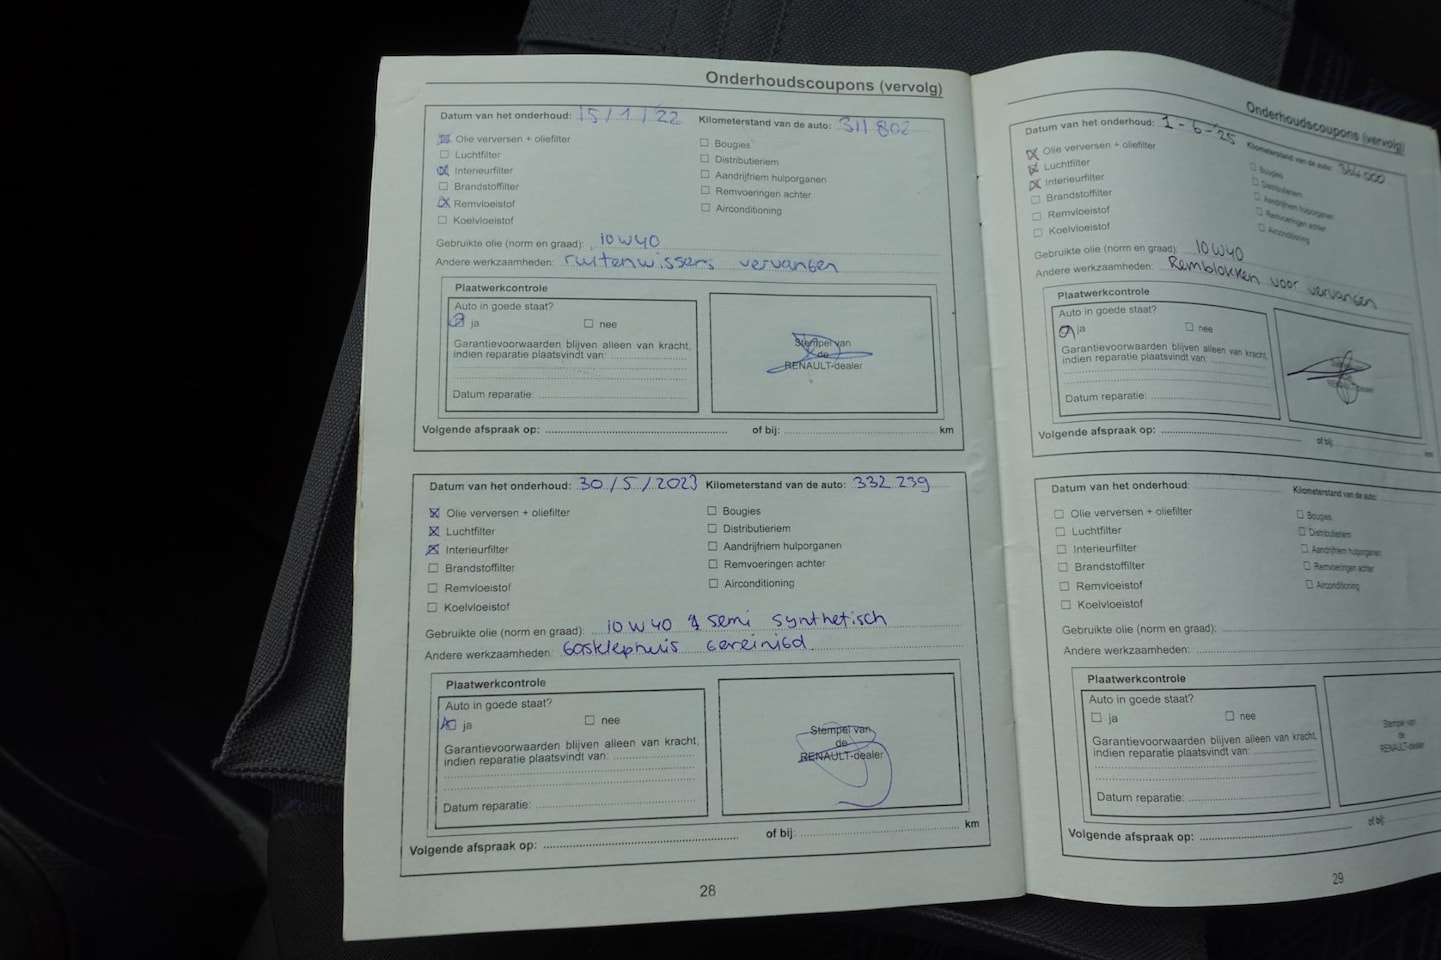 Onderhoudscoupons (vervolg)
Datum van het onderhoud: 15/1/22 Kilometerstand van de auto: 311 802
Olie verversen + oliefilter
Luchtfilter
Interieurfilter
Brandstoffilter
Remvloeistof
Koelvloeistof
Bougies
Distributieriem
Aandrijfriem hulporganen
Remvoeringen achter
Airconditioning
Gebruikte olie (norm en graad): 10W40
Andere werkzaamheden: ruitenwissers vervangen
Plaatwerkcontrole
Auto in goede staat?
ja nee
Garantievoorwaarden blijven alleen van kracht,
indien reparatie plaatsvindt van:
Datum reparatie:
Stempel van
de
RENAULT-dealer
Volgende afspraak op: of bij: km
Datum van het onderhoud: 30/5/2023 Kilometerstand van de auto: 332 239
Olie verversen + oliefilter
Luchtfilter
Interieurfilter
Brandstoffilter
Remvloeistof
Koelvloeistof
Bougies
Distributieriem
Aandrijfriem hulporganen
Remvoeringen achter
Airconditioning
Gebruikte olie (norm en graad): 10W40 semi synthetisch
Andere werkzaamheden: Gasklephuis gereinigd
Plaatwerkcontrole
Auto in goede staat?
ja nee
Garantievoorwaarden blijven alleen van kracht,
indien reparatie plaatsvindt van:
Datum reparatie:
Stempel van
de
RENAULT-dealer
Volgende afspraak op: of bij: km
28
Onderhoudscoupons (vervolg)
Datum van het onderhoud: 1-6-'25 Kilometerstand van de auto: 364.000
Olie verversen + oliefilter
Luchtfilter
Interieurfilter
Brandstoffilter
Remvloeistof
Koelvloeistof
Bougies
Distributieriem
Aandrijfriem hulporganen
Remvoeringen achter
Airconditioning
Gebruikte olie (norm en graad): 10W40
Andere werkzaamheden: Remblokken voor vervangen
Plaatwerkcontrole
Auto in goede staat?
ja nee
Garantievoorwaarden blijven alleen van kracht,
indien reparatie plaatsvindt van:
Datum reparatie:
Volgende afspraak op: of bij: km
Datum van het onderhoud: Kilometerstand van de auto:
Olie verversen + oliefilter
Luchtfilter
Interieurfilter
Brandstoffilter
Remvloeistof
Koelvloeistof
Bougies
Distributieriem
Aandrijfriem hulporganen
Remvoeringen achter
Airconditioning
Gebruikte olie (norm en graad):
Andere werkzaamheden:
Plaatwerkcontrole
Auto in goede staat?
ja nee
Garantievoorwaarden blijven alleen van kracht,
indien reparatie plaatsvindt van:
Datum reparatie:
Stempel van
de
RENAULT-dealer
Volgende afspraak op: of bij:
29